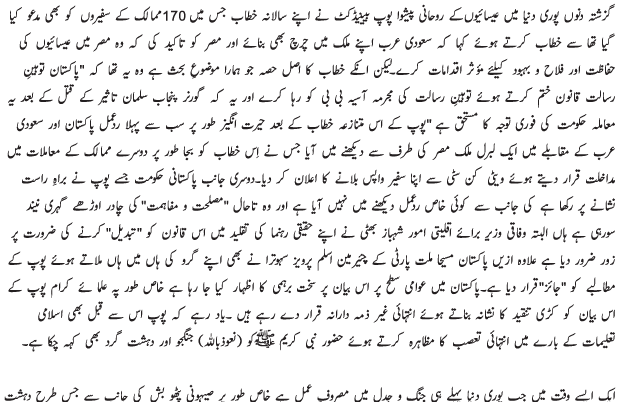 گزشتہ دنوں پوری دنیا میں عیسائیوں کے روحانی پیشوا پوپ بینیڈکٹ نے اپنے سالانہ خطاب جس میں 170 ممالک کے سفیروں کو بھی مدعو کیا
گیا تھا سے خطاب کرتے ہوئے کہا کہ سعودی عرب اپنے ملک میں چرچ بھی بنائے اور مصر کو تاکید کی کہ وہ مصر میں عیسائیوں کی
حفاظت اور فلاح و بہبود کیلئے مؤثر اقدامات کرے۔ لیکن انکے خطاب کا اصل حصہ جو ہمارا موضوع بحث ہے وہ یہ تھا کہ "پاکستان توہینِ
رسالت قانون ختم کرتے ہوئے توہین رسالت کی مجرمہ آسیہ بی بی کو رہا کرے اور یہ کہ گورنر پنجاب سلمان تاثیر کے قتل کے بعد یہ
معاملہ حکومت کی فوری توجہ کا مستحق ہے" پوپ کے اس متنازعہ خطاب کے بعد حیرت انگیز طور پر سب سے پہلا ردعمل پاکستان اور سعودی
عرب کے مقابلے میں ایک لبرل ملک مصر کی طرف سے دیکھنے میں آیا جس نے اِس خطاب کو بجا طور پر دوسرے ممالک کے معاملات میں
مداخلت قرار دیتے ہوئے ویٹی کن سٹی سے اپنا سفیر واپس بلانے کا اعلان کر دیا۔ دوسری جانب پاکستانی حکومت جسے پوپ نے براہِ راست
نشانے پر رکھا ہے کی جانب سے کوئی خاص ردعمل دیکھنے میں نہیں آیا ہے اور وہ تاحال "مصلحت و مفاہمت" کی چادر اوڑھے گہری نیند
سورہی ہے ہاں البتہ وفاقی وزیر برائے اقلیتی امور شہباز بھٹی نے اپنے حقیقی رہنما کی تقلید میں اس قانون کو "تبدیل" کرنے کی ضرورت پر
زور ضرور دیا ہے علاوہ ازیں پاکستان مسیحا ملت پارٹی کے چئیرمین اسلم پرویز سہوترا نے بھی اپنے گرو کی ہاں میں ہاں ملاتے ہوئے پوپ کے
مطالبے کو "جائز" قرار دیا ہے۔ پاکستان میں عوامی سطح پر اس بیان پر سخت برہمی کا اظہار کیا جا رہا ہے خاص طور پہ علمائے کرام پوپ کے
اس بیان کو کڑی تنقید کا نشانہ بناتے ہوئے انتہائی غیر ذمہ دارانہ قرار دے رہے ہیں۔ یاد رہے کہ پوپ اس سے قبل بھی اسلامی
تعلیمات کے بارے میں انتہائی تعصب کا مظاہرہ کرتے ہوئے حضور نبی کریم ﷺ کو (نعوذباللہ) جنگجو اور دہشت گرد بھی کہہ چکا ہے۔
ایک ایسے وقت میں جب پوری دنیا پہلے ہی جنگ و جدل میں مصروفِ عمل ہے خاص طور پر صیہونی پٹھو بش کی جانب سے جس طرح دہشت